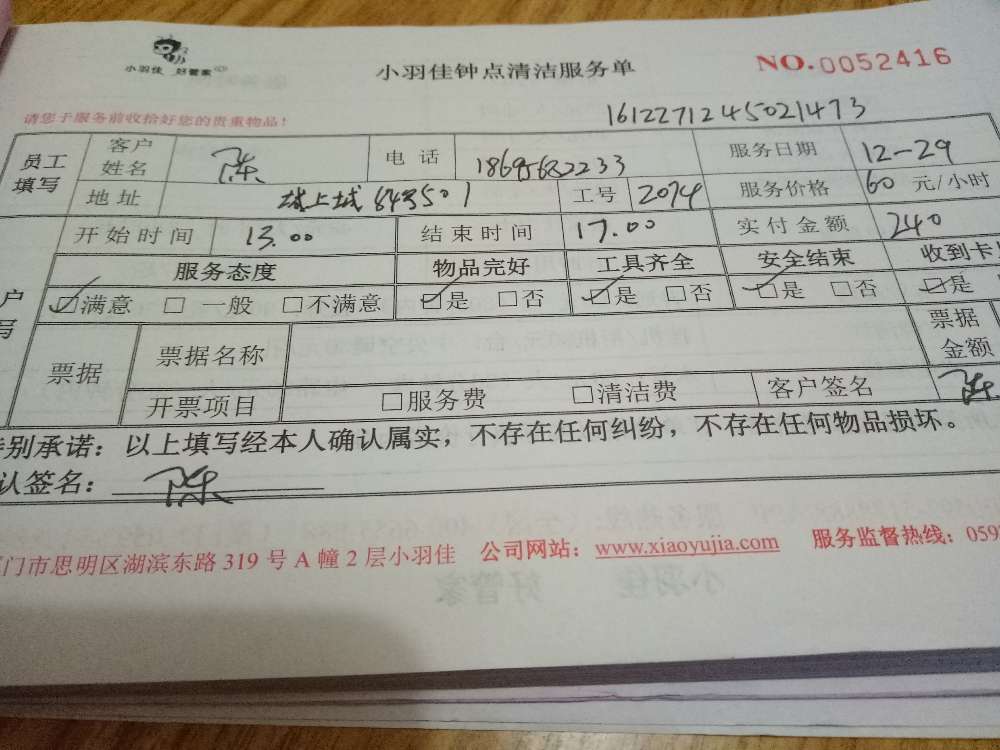 小羽佳 好管家
小羽佳钟点清洁服务单
NO.0052416
请您于服务前收拾好您的贵重物品!
1612271245021473
员工填写 客户姓名 陈 电话 服务日期 12-29
地址 工号 2074 服务价格 60 元/小时
开始时间 13.00 结束时间 17.00 实付金额 240
服务态度 物品完好 工具齐全 安全结束 收到卡
☑满意 □一般 □不满意 ☑是 □否 ☑是 □否 ☑是 □否 ☑是
户
写
票据 票据名称 票据金额
开票项目 □服务费 □清洁费 客户签名 陈
别承诺：以上填写经本人确认属实，不存在任何纠纷，不存在任何物品损坏。
认签名：陈
门市思明区湖滨东路 319 号 A 幢 2 层小羽佳 公司网站：www.xiaoyujia.com 服务监督热线：059